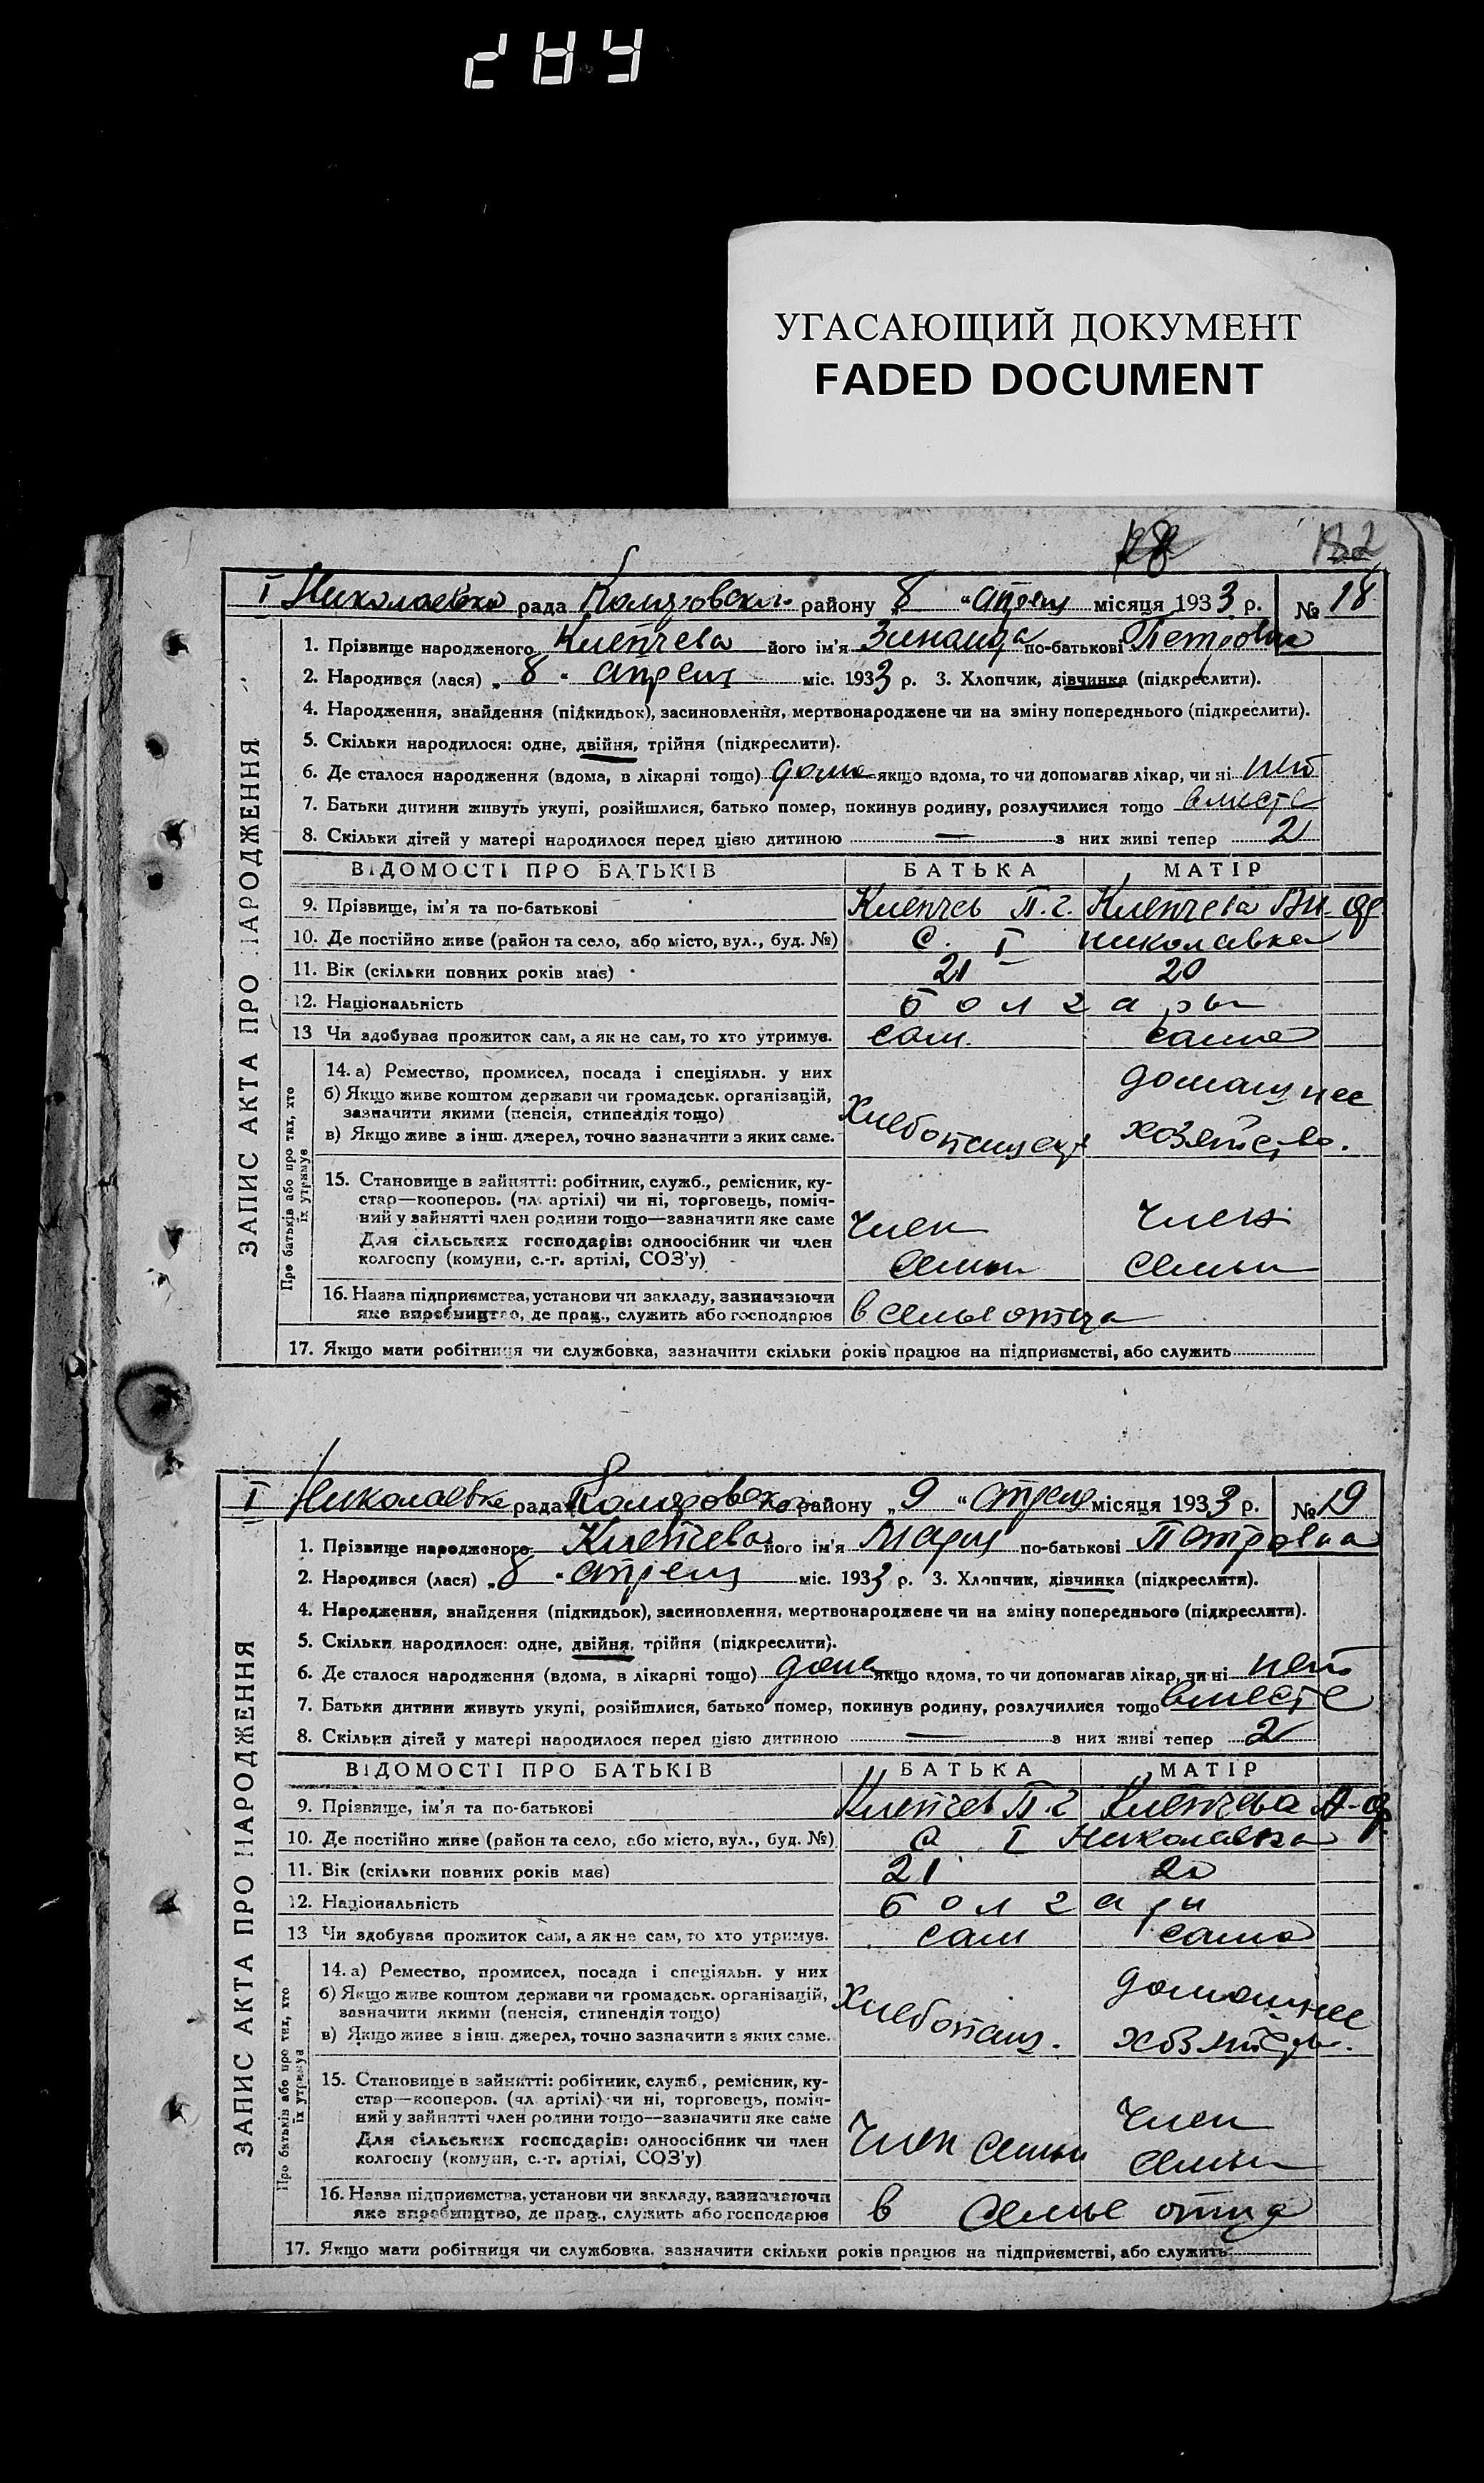 УГАСАЮЩИЙ ДОКУМЕНТ
FADED DOCUMENT
182
I Николаевка рада Коларовского району „8 “ апреля місяця 1933 р. № 18
ЗАПИС АКТА ПРО НАРОДЖЕННЯ
1. Прізвище народженого Клепчева його ім’я Зинаида по-батькові Петровна
2. Народився (лася) „ 8 “ апреля міс. 1933 р. 3. Хлопчик, дівчинка (підкреслити).
4. Народження, знайдення (підкидьок), засиновлення, мертвонароджене чи на зміну попереднього (підкреслити).
5. Скільки народилося: одне, двійня, трійня (підкреслити).
6. Де сталося народження (вдома, в лікарні тощо) дома якщо вдома, то чи допомагав лікар, чи ні нет
7. Батьки дитини живуть укупі, розійшлися, батько помер, покинув родину, розлучилися тощо вместе
8. Скільки дітей у матері народилося перед цією дитиною — з них живі тепер 2
ВІДОМОСТІ ПРО БАТЬКІВ БАТЬКА МАТІР
9. Прізвище, ім’я та по-батькові Клепчев П. Г. Клепчева
10. Де постійно живе (район та село, або місто, вул., буд. №) с. I Николавка
11. Вік (скільки повних років має) 21 20
12. Національність болгары
13 Чи здобуває прожиток сам, а як не сам, то хто утримує. сам. сама
Про батьків або про тих, хто їх утримує
14. а) Ремество, промисел, посада і спеціяльн. у них
б) Якщо живе коштом держави чи громадськ. організацій,
зазначити якими (пенсія, стипендія тощо)
в) Якщо живе з інш. джерел, точно зазначити з яких саме.
Хлебопашец домашнее хозяйство.
15. Становище в зайнятті: робітник, служб., ремісник, ку-
стар—кооперов. (чл. артілі) чи ні, торговець, поміч-
ний у зайнятті член родини тощо—зазначити яке саме
Для сільських господарів: одноосібник чи член
колгоспу (комуни, с.-г. артілі, СОЗ’у)
член семьи член семьи
16. Назва підприємства, установи чи закладу, зазначаючи
яке виробництво, де прац., служить або господарює в семье отца
17. Якщо мати робітниця чи службовка, зазначити скільки років працює на підприємстві, або служить
I Николаевка рада Коларовского району „ 9 “ апреля місяця 1933 р. № 19
ЗАПИС АКТА ПРО НАРОДЖЕННЯ
1. Прізвище народженого Клепчева його ім’я Мария по-батькові Петровна
2. Народився (лася) „ 8 “ апреля міс. 1933 р. 3. Хлопчик, дівчинка (підкреслити).
4. Народження, знайдення (підкидьок), засиновлення, мертвонароджене чи на зміну попереднього (підкреслити).
5. Скільки народилося: одне, двійня, трійня (підкреслити).
6. Де сталося народження (вдома, в лікарні тощо) дома якщо вдома, то чи допомагав лікар, чи ні нет
7. Батьки дитини живуть укупі, розійшлися, батько помер, покинув родину, розлучилися тощо вместе
8. Скільки дітей у матері народилося перед цією дитиною — з них живі тепер 2
ВІДОМОСТІ ПРО БАТЬКІВ БАТЬКА МАТІР
9. Прізвище, ім’я та по-батькові Клепчев П. Г Клепчева
10. Де постійно живе (район та село, або місто, вул., буд. №) с I Николаевка
11. Вік (скільки повних років має) 21 20
12. Національність болгари
13 Чи здобуває прожиток сам, а як не сам, то хто утримує. сам сама
Про батьків або про тих, хто їх утримує
14. а) Ремество, промисел, посада і спеціяльн. у них
б) Якщо живе коштом держави чи громадськ. організацій,
зазначити якими (пенсія, стипендія тощо)
в) Якщо живе з інш. джерел, точно зазначити з яких саме.
Хлебопаш. домашнее
15. Становище в зайнятті: робітник, служб., ремісник, ку-
стар—кооперов. (чл. артілі) чи ні, торговець, поміч-
ний у зайнятті член родини тощо—зазначити яке саме
Для сільських господарів: одноосібник чи член
колгоспу (комуни, с.-г. артілі, СОЗ’у)
член семьи член семьи
16. Назва підприємства, установи чи закладу, зазначаючи
яке виробництво, де прац., служить або господарює в семье отца
17. Якщо мати робітниця чи службовка, зазначити скільки років працює на підприємстві, або служить